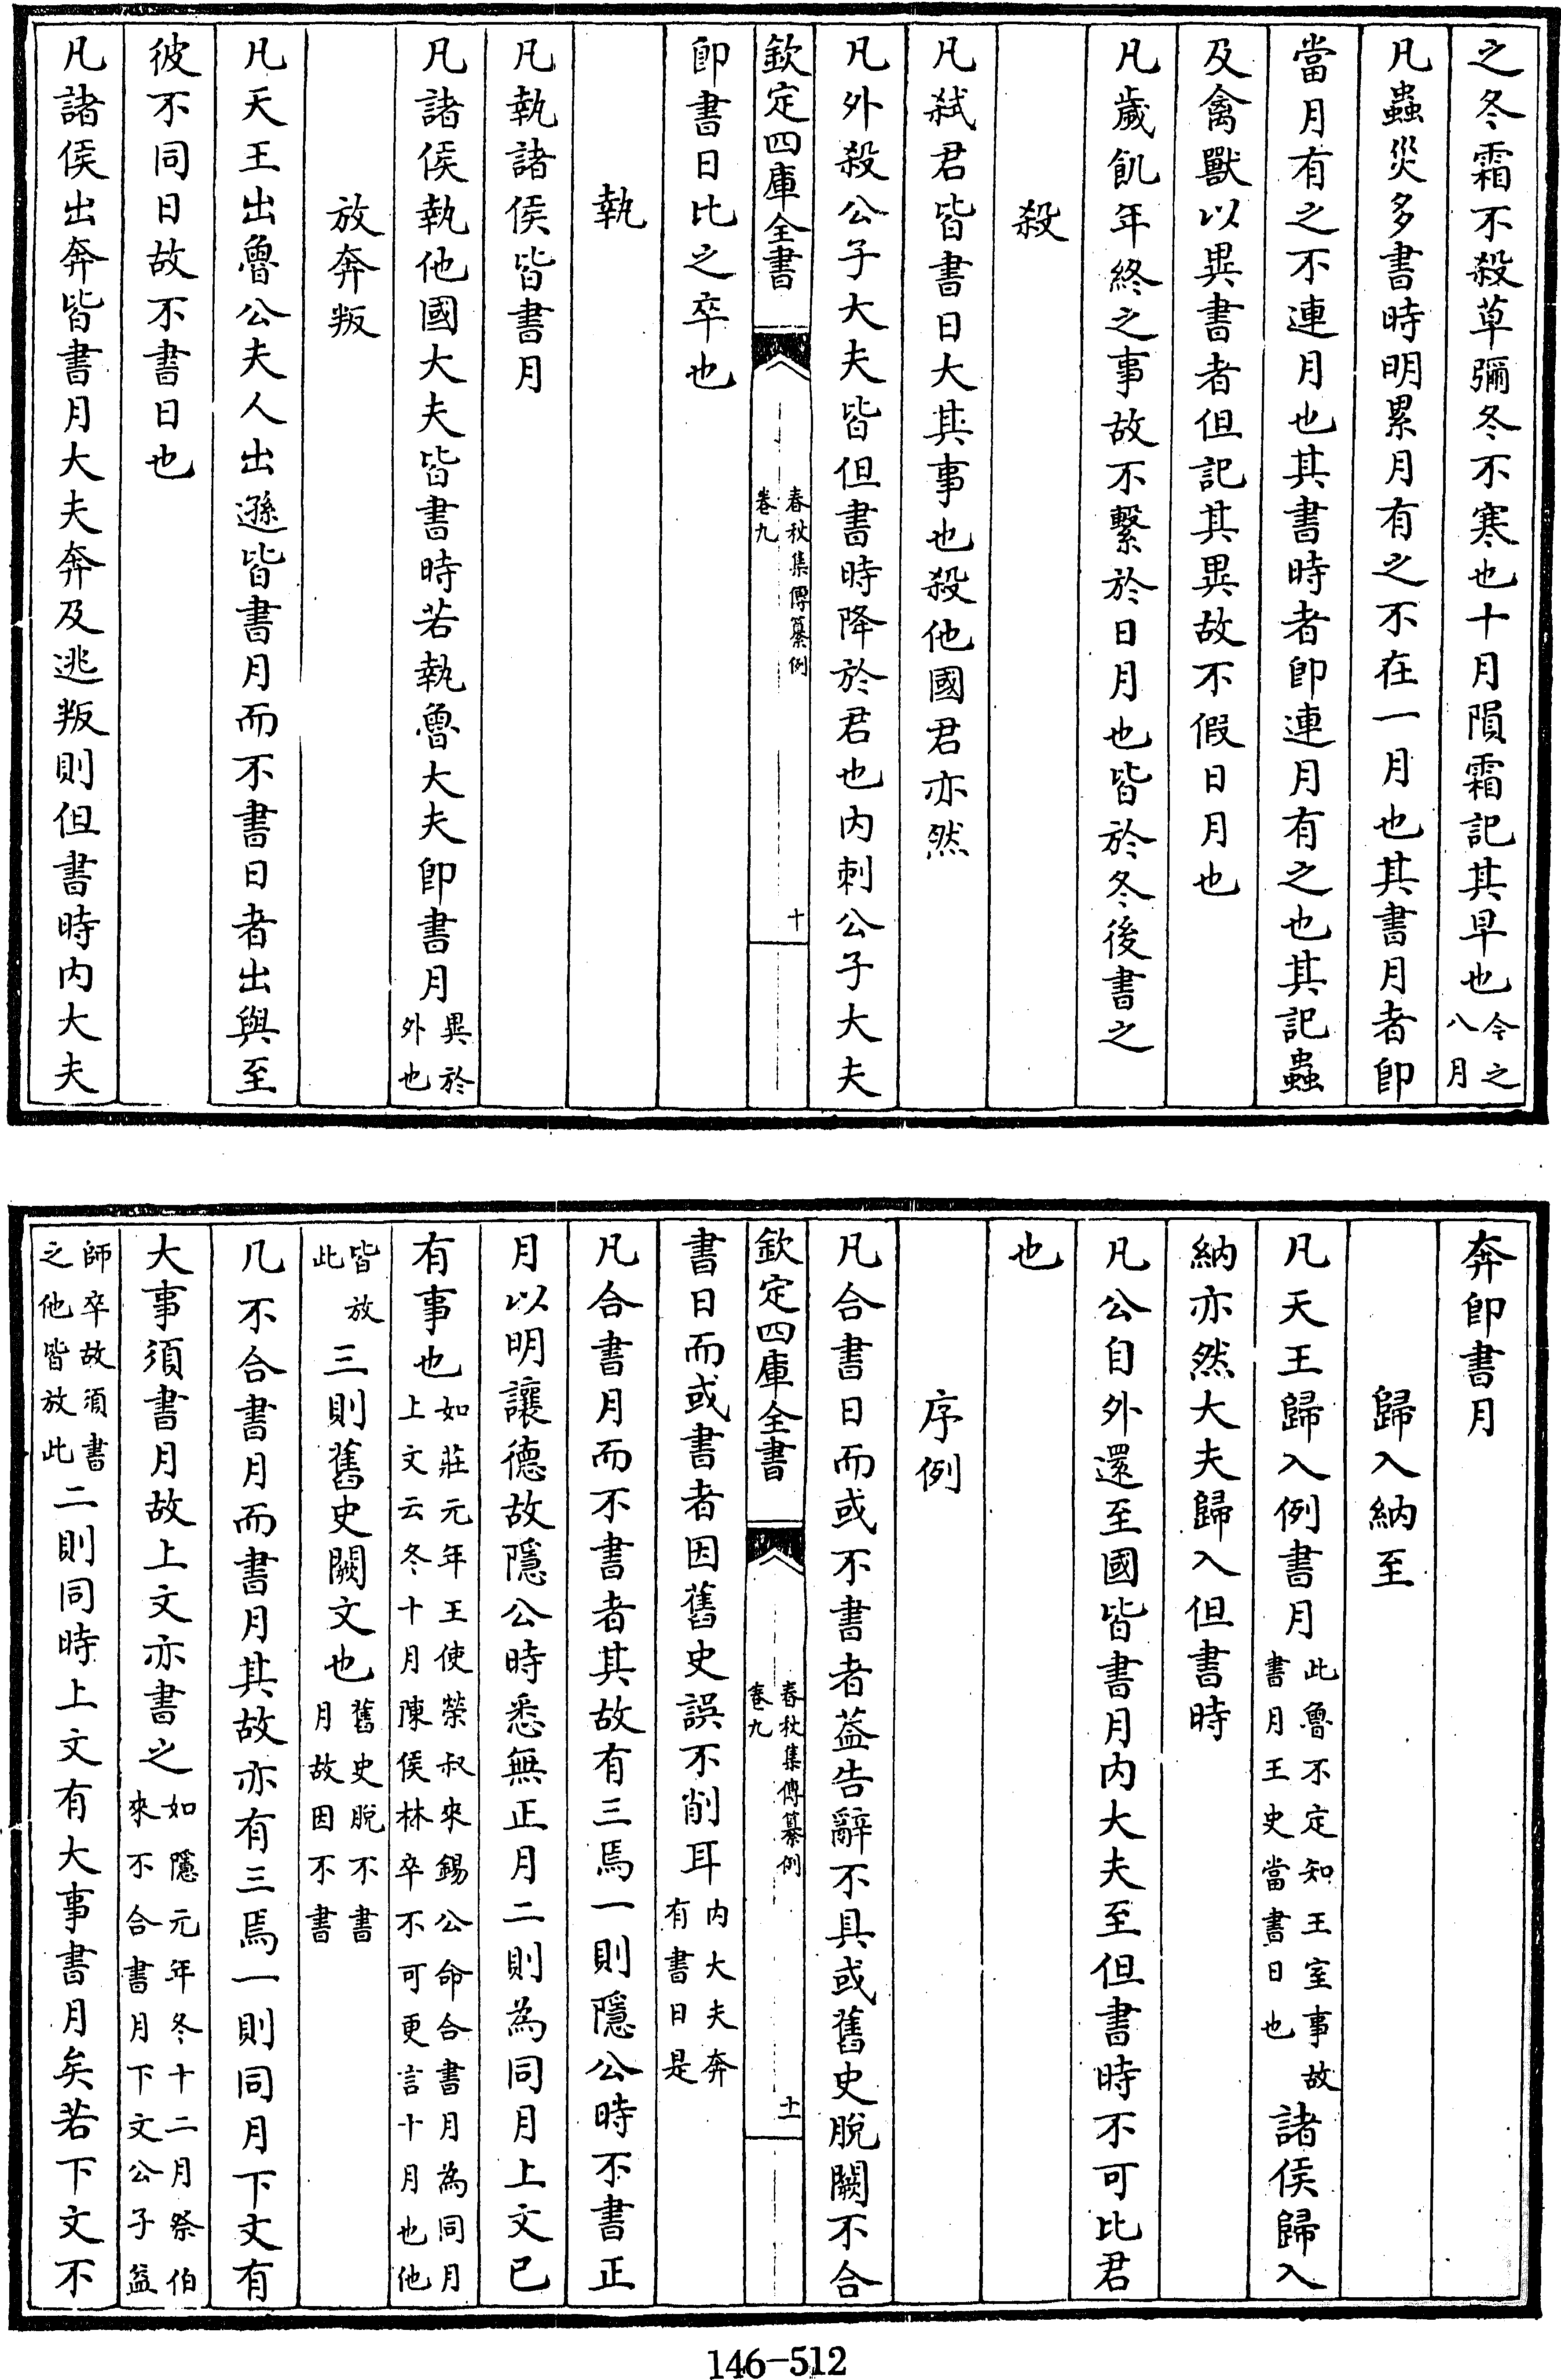 之冬霜不殺草彌冬不寒也十月隕霜記其早也今之八月
凡蟲災多書時明累月有之不在一月也其書月者卽
當月有之不連月也其書時者卽連月有之也其記蟲
及禽獸以異書者但記其異故不假日月也
凡歲飢年終之事故不繫於日月也皆於冬後書之
殺
凡弑君皆書日大其事也殺他國君亦然
凡外殺公子大夫皆但書時降於君也内刺公子大夫
欽定四庫全書
春秋集傳纂例
卷九
十
卽書日比之卒也
執
凡執諸侯皆書月
凡諸侯執他國大夫皆書時若執魯大夫卽書月異於外也
放奔叛
凡天王出魯公夫人出遜皆書月而不書日者出與至
彼不同日故不書日也
凡諸侯出奔皆書月大夫奔及逃叛則但書時内大夫
奔卽書月
歸入納至
凡天王歸入例書月此魯不定知王室事故書月王史當書日也諸侯歸入
納亦然大夫歸入但書時
凡公自外還至國皆書月内大夫至但書時不可比君
也
序例
凡合書日而或不書者蓋告辭不具或舊史脫闕不合
欽定四庫全書
春秋集傳纂例
卷九
十一
書日而或書者因舊史誤不削耳内大夫奔有書日是
凡合書月而不書者其故有三焉一則隱公時不書正
月以明讓德故隱公時悉無正月二則為同月上文已
有事也如莊元年王使榮叔來錫公命合書月為同月上文云冬十月陳侯林卒不可更言十月也他
皆放此三則舊史闕文也舊史脫不書月故因不書
凡不合書月而書月其故亦有三焉一則同月下文有
大事須書月故上文亦書之如隱元年冬十二月祭伯來不合書月下文公子益
師卒故須書之他皆放此二則同時上文有大事書月矣若下文不
146-512